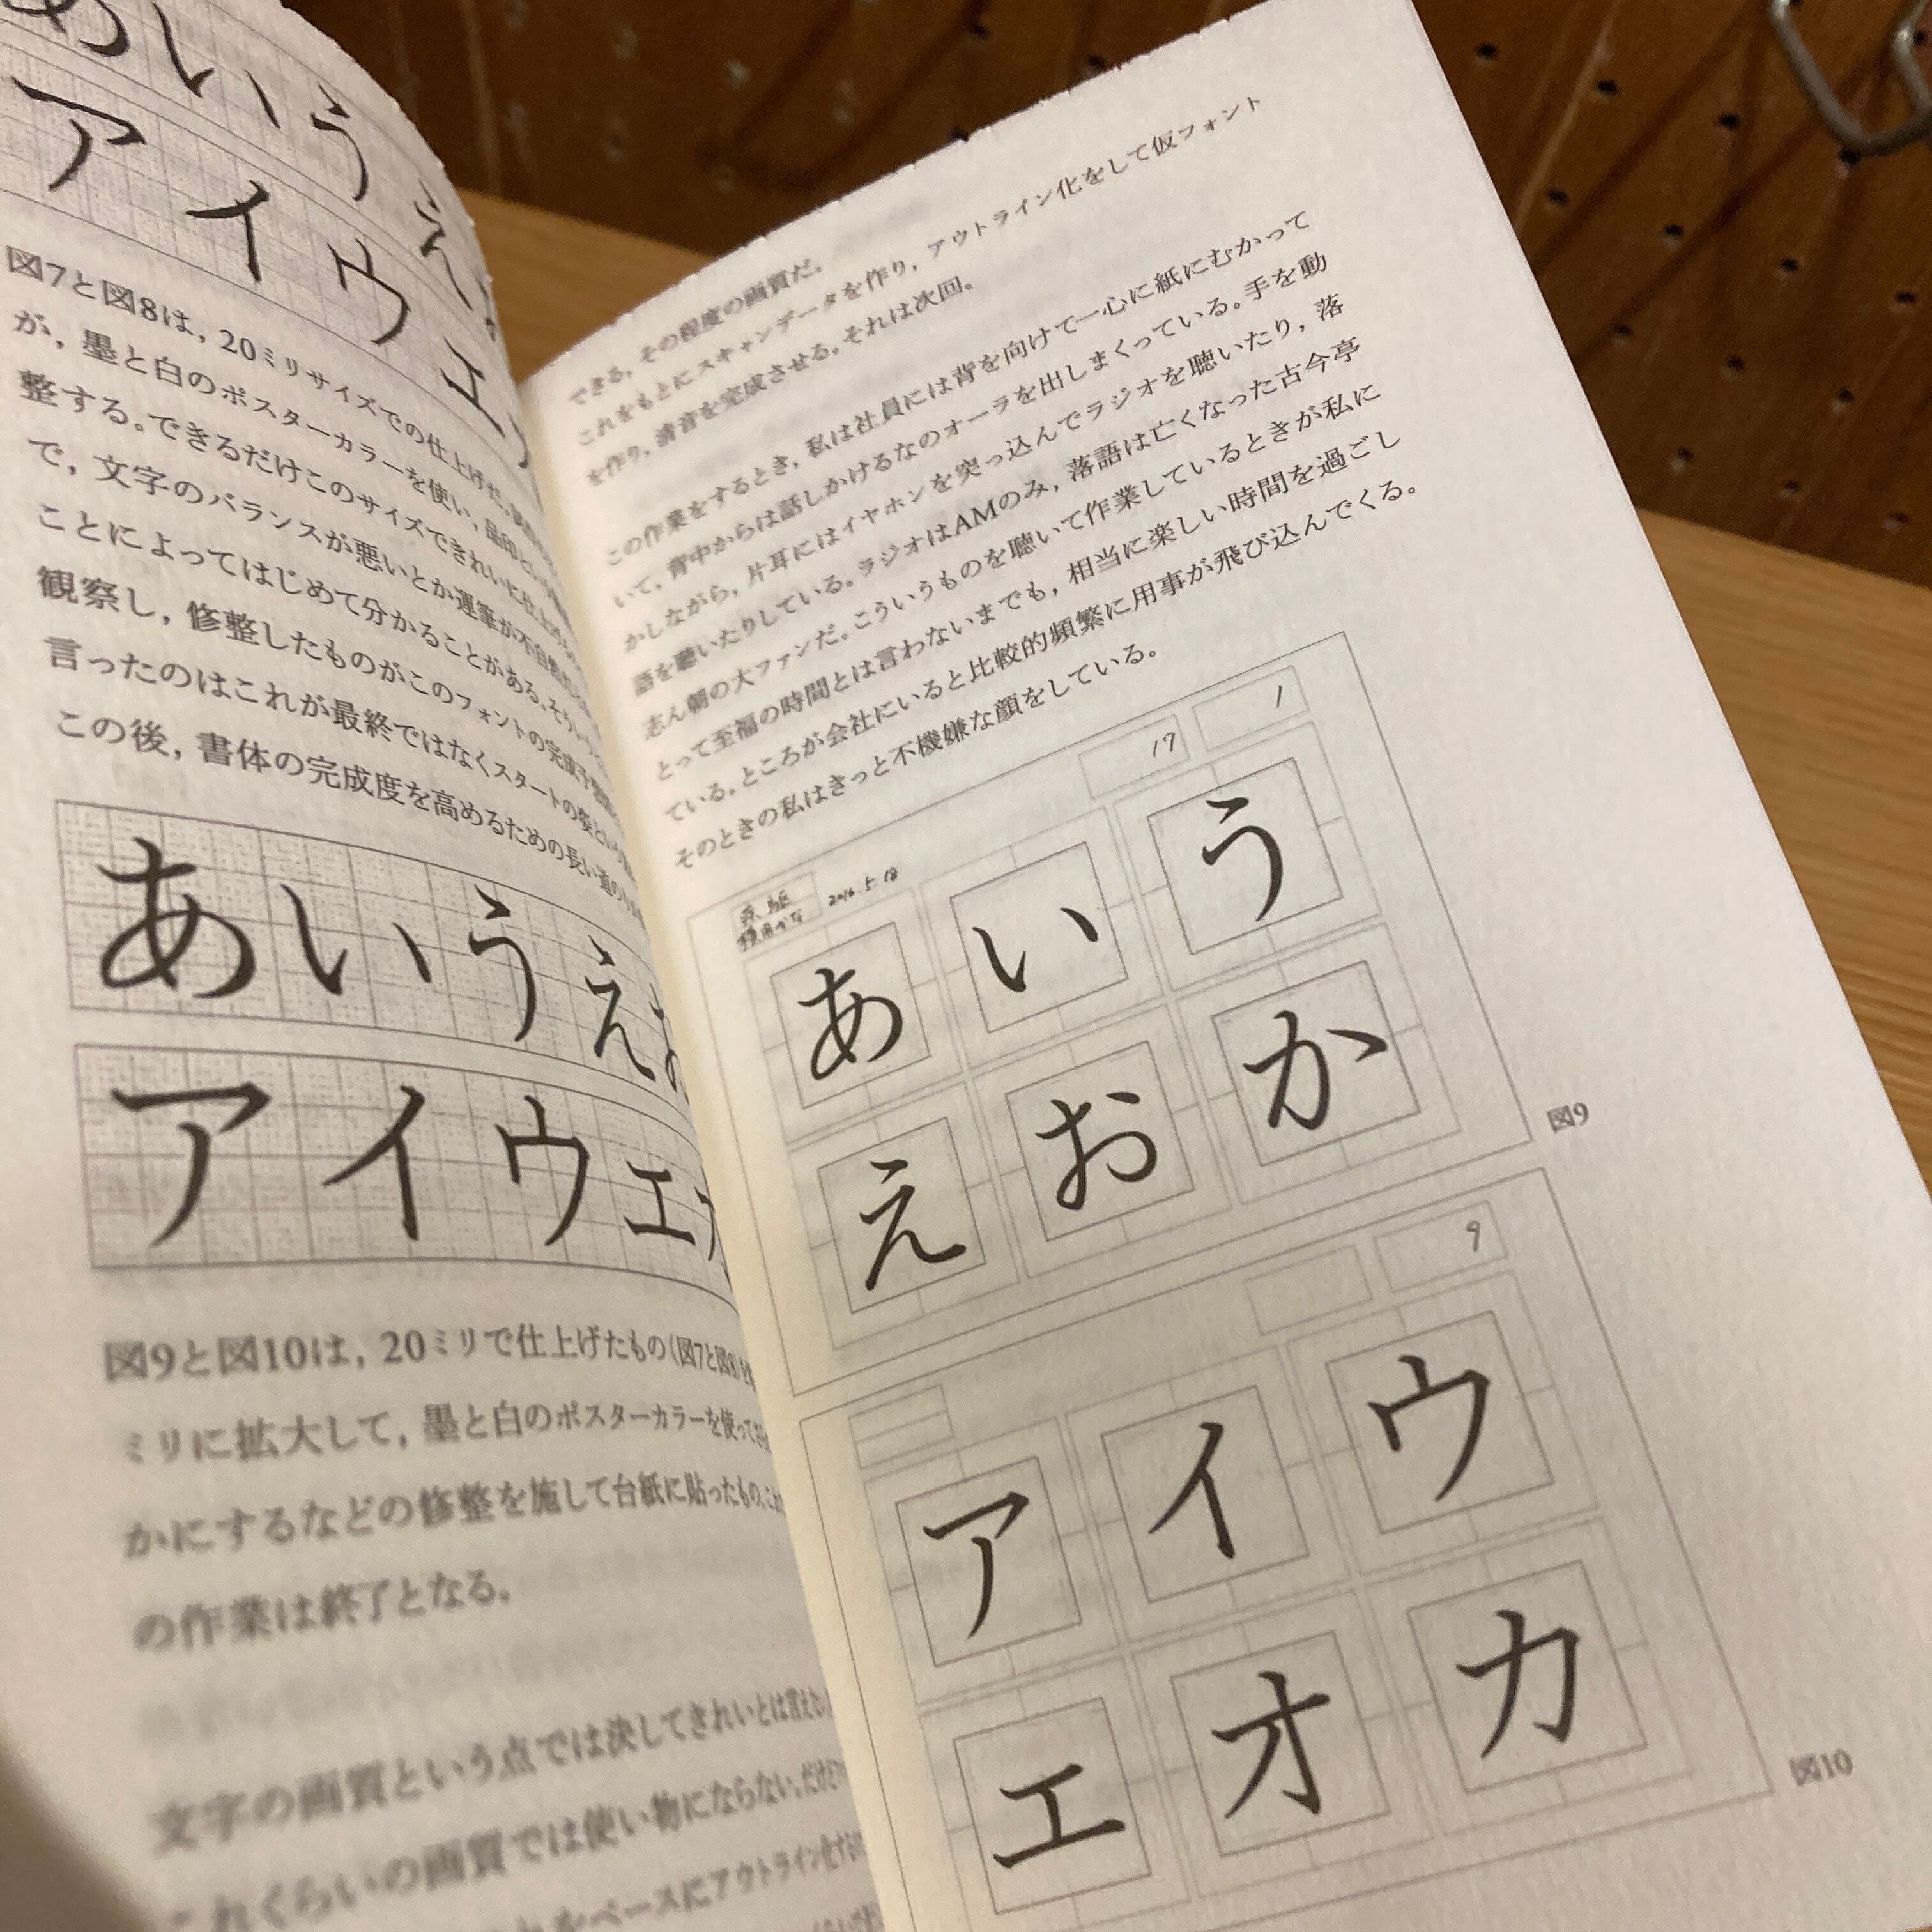 あいうえ
アイウエ
図7と図8は，20ミリサイズでの仕上げだ。
が，墨と白のポスターカラーを使い，品印と
整する。できるだけこのサイズできれいに仕上
で，文字のバランスが悪いとか運筆が不自然
ことによってはじめて分かることがある。そういう
観察し，修整したものがこのフォントの完成予想
言ったのはこれが最終ではなくスタートの姿という
この後，書体の完成度を高めるための長い道のり
あいうえお
アイウエオ
図9と図10は，20ミリで仕上げたもの（図7と図8）を
ミリに拡大して，墨と白のポスターカラーを使って
かにするなどの修整を施して台紙に貼ったもの。これ
の作業は終了となる。
文字の画質という点では決してきれいとは言えない
これくらいの画質では使い物にならない。だけど
をベースにアウトライン化する
できる，その程度の画質だ。
これをもとにスキャンデータを作り，アウトライン化をして仮フォント
を作り，清音を完成させる。それは次回。
この作業をするとき，私は社員には背を向けて一心に紙にむかって
いて，背中からは話しかけるなのオーラを出しまくっている。手を動
かしながら，片耳にはイヤホンを突っ込んでラジオを聴いたり，落
語を聴いたりしている。ラジオはAMのみ，落語は亡くなった古今亭
志ん朝の大ファンだ。こういうものを聴いて作業しているときが私に
とって至福の時間とは言わないまでも，相当に楽しい時間を過ごし
ている。ところが会社にいると比較的頻繁に用事が飛び込んでくる。
そのときの私はきっと不機嫌な顔をしている。
17
1
2016.5.18
あいう
えおか
図9
9
アイウ
エオカ
図10